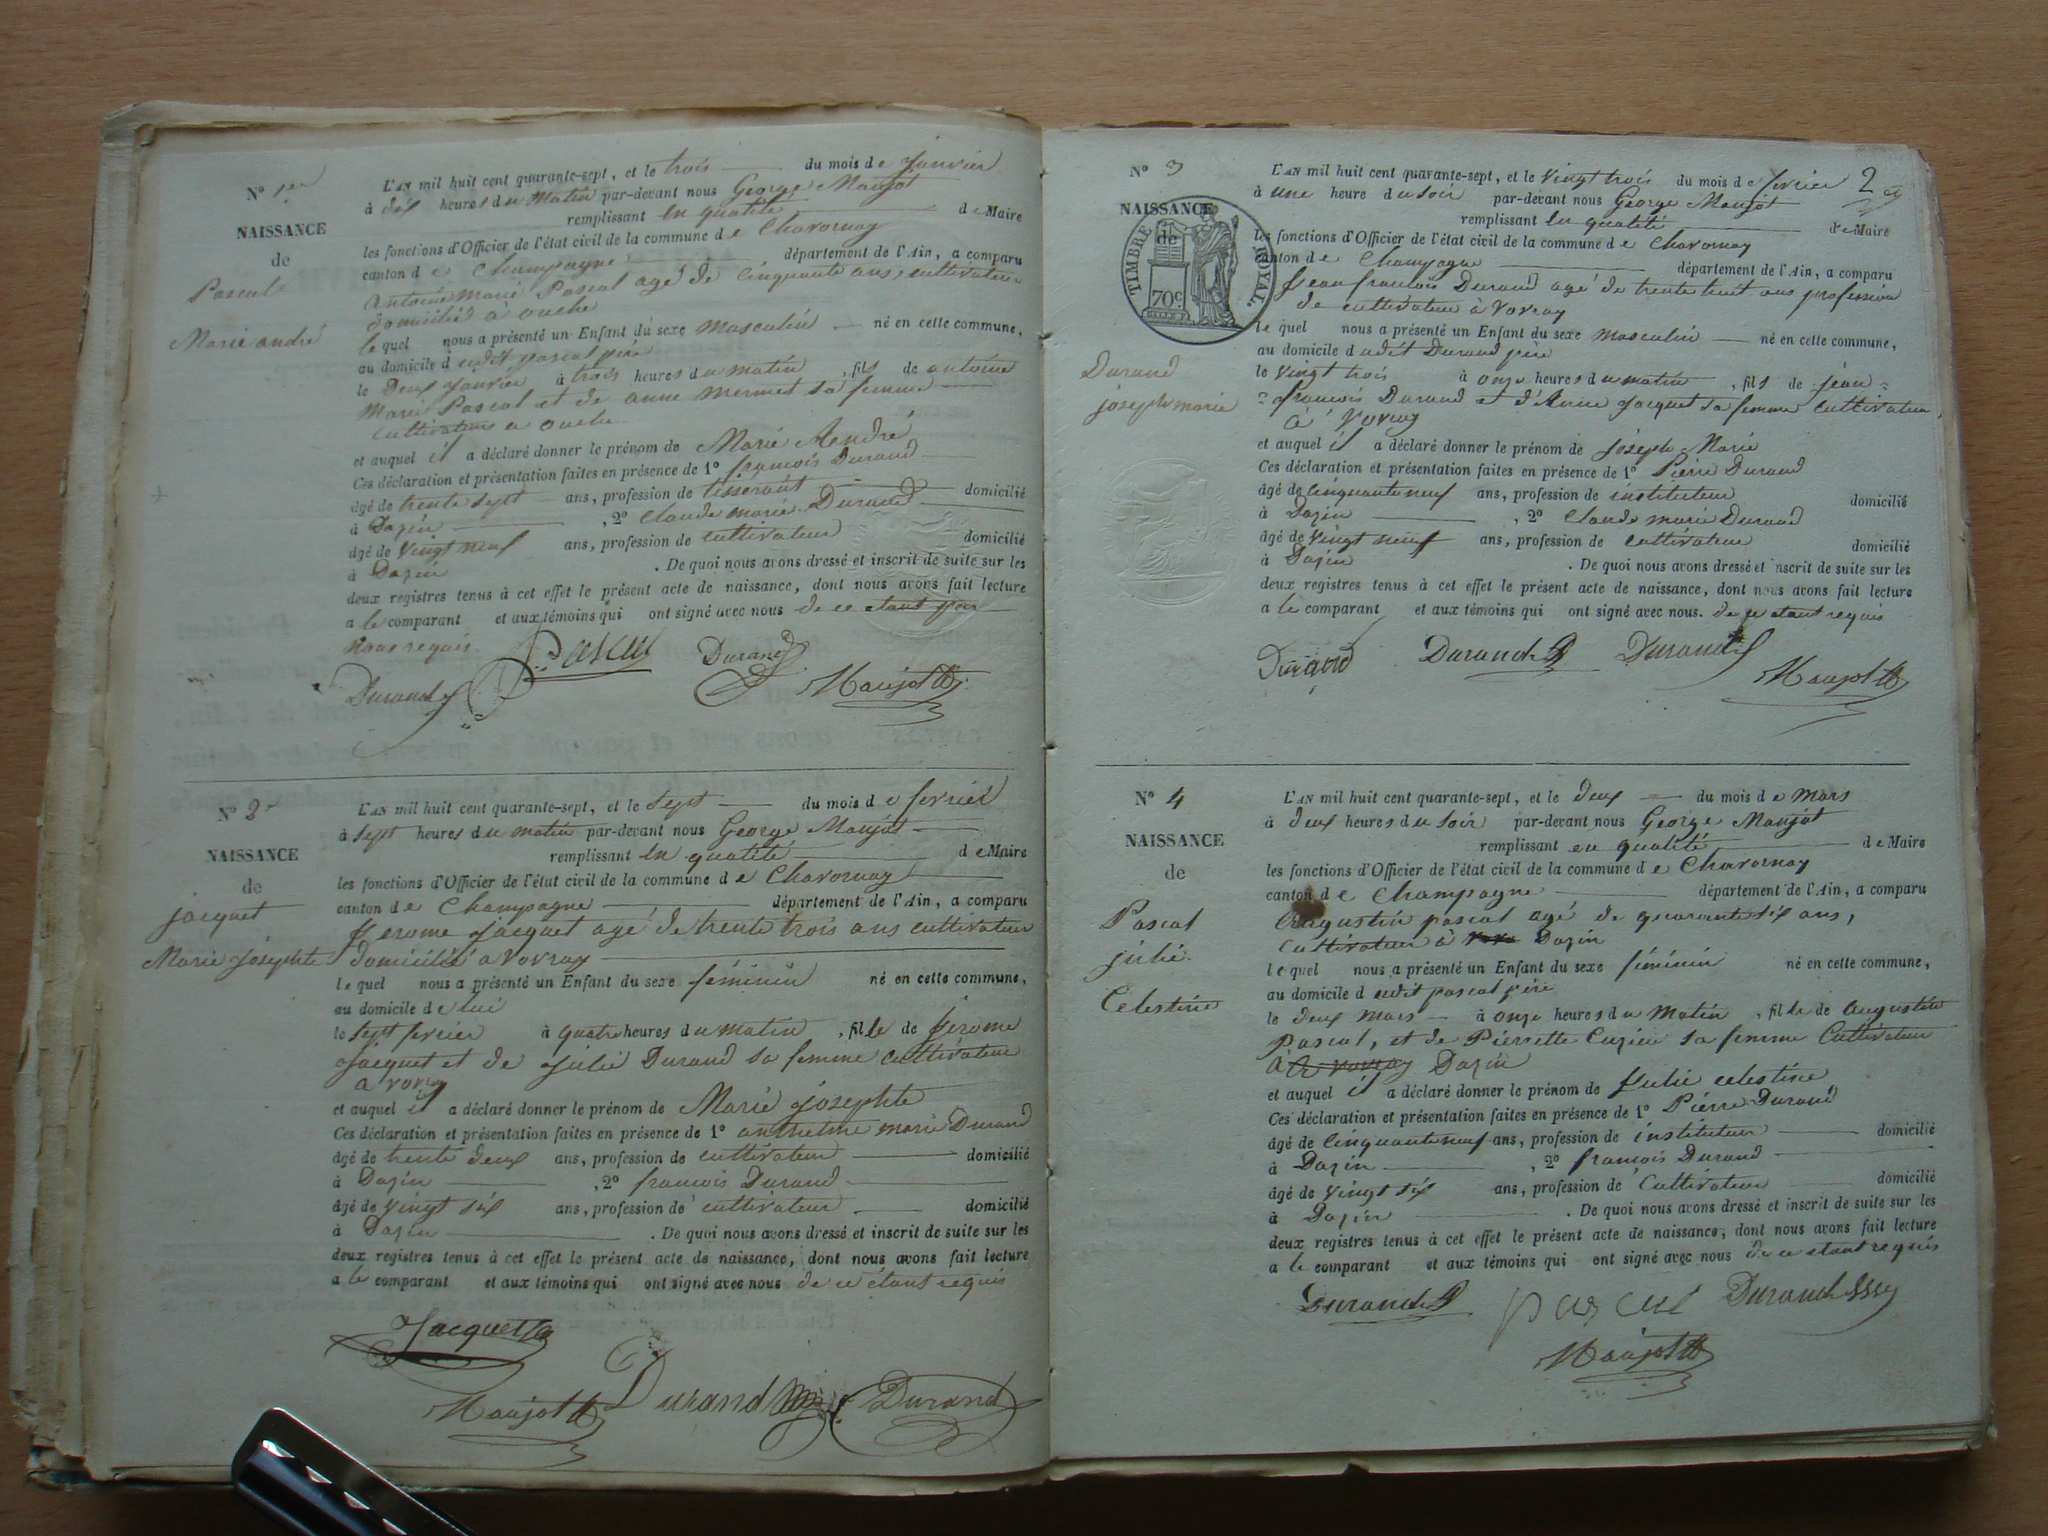 N° 1er
NAISSANCE
de
Pascal
Marie andré
L'AN mil huit cent quarante-sept, et le trois du mois de Janvier
à dix heures du Matin par-devant nous George Maujot
remplissant en qualité de Maire
les fonctions d'Officier de l'état civil de la commune de Chavornay
canton de Champagne département de l'Ain, a comparu
Antoine Marie Pascal agé de Cinquante ans, cultivateur
domicilié à ouche
lequel nous a présenté un Enfant du sexe Masculin né en cette commune,
au domicile dudit pascal père
le Deux Janvier à trois heures du matin, fils de antoine
Marie Pascal et de anne Mermet sa femme
Cultivateurs a ouche
et auquel il a déclaré donner le prénom de Marie André
Ces déclaration et présentation faites en présence de 1° françois Durand
âgé de trente sept ans, profession de tisserant domicilié
à Dazin, 2° Claude marie Durand
âgé de vingt neuf ans, profession de cultivateur domicilié
à Dazin. De quoi nous avons dressé et inscrit de suite sur les
deux registres tenus à cet effet le présent acte de naissance, dont nous avons fait lecture
a le comparant et aux témoins qui ont signé avec nous de ce étant par
Nous requis.
Pascal Durand
Durand Maujot
N° 2e
NAISSANCE
de
jacquet
Marie josephte
L'AN mil huit cent quarante-sept, et le sept du mois de fevrier
à sept heures du matin par-devant nous George Maujot
remplissant en qualité de Maire
les fonctions d'Officier de l'état civil de la commune de Chavornay
canton de Champagne département de l'Ain, a comparu
Jerome Jacquet agé de trente trois ans cultivateur
domicilié a vovray
lequel nous a présenté un Enfant du sexe féminin né en cette commune,
au domicile de lui
le sept fevrier à quatre heures du matin, fille de Jerome
Jacquet et de Julie Durand sa femme cultivateur
a vovray
et auquel il a déclaré donner le prénom de Marie Josephte
Ces déclaration et présentation faites en présence de 1° anthelme marie Durand
âgé de trente deux ans, profession de cultivateur domicilié
à Dazin, 2° françois Durand
âgé de vingt six ans, profession de cultivateur domicilié
à Dazin. De quoi nous avons dressé et inscrit de suite sur les
deux registres tenus à cet effet le présent acte de naissance, dont nous avons fait lecture
a le comparant et aux témoins qui ont signé avec nous de ce étant requis
Jacquet
Maujot Durand Durand
2
N° 3
NAISSANCE
de
TIMBRE ROYAL
70c
Durand
joseph marie
L'AN mil huit cent quarante-sept, et le vingt trois du mois de fevrier
à une heure du soir par-devant nous George Maujot
remplissant en qualité de Maire
les fonctions d'Officier de l'état civil de la commune de Chavornay
canton de Champagne département de l'Ain, a comparu
Jean françois Durand agé de trente huit ans profession
de cultivateur à vovray
lequel nous a présenté un Enfant du sexe masculin né en cette commune,
au domicile dudit Durand père
le vingt trois à onze heures du matin, fils de jean=
=françois Durand et d'Anne Jacquet sa femme cultivateur,
à vovray
et auquel il a déclaré donner le prénom de joseph Marie
Ces déclaration et présentation faites en présence de 1° Pierre Durand
âgé de cinquante neuf ans, profession de instituteur domicilié
à Dazin, 2° Claude marie Durand
âgé de vingt neuf ans, profession de cultivateur domicilié
à Dazin. De quoi nous avons dressé et inscrit de suite sur les
deux registres tenus à cet effet le présent acte de naissance, dont nous avons fait lecture
a le comparant et aux témoins qui ont signé avec nous. de ce étant requis
Durand Durand Durand
Maujot
N° 4
NAISSANCE
de
Pascal
julie
Celestine
L'AN mil huit cent quarante-sept, et le deux du mois de Mars
à deux heures du soir par-devant nous George Maujot
remplissant en qualité de Maire
les fonctions d'Officier de l'état civil de la commune de Chavornay
canton de Champagne département de l'Ain, a comparu
Augustin pascal agé de quarante six ans,
cultivateur à Dazin
lequel nous a présenté un Enfant du sexe féminin né en cette commune,
au domicile dudit pascal père
le deux mars à onze heures du Matin, fille de augustin
Pascal, et de Pierrette Cuzin sa femme Cultivateur
à vovray Dazin
et auquel il a déclaré donner le prénom de Julie celestine
Ces déclaration et présentation faites en présence de 1° Pierre Durand
âgé de cinquante neuf ans, profession de instituteur domicilié
à Dazin, 2° françois Durand
âgé de vingt six ans, profession de Cultivateur domicilié
à Dazin. De quoi nous avons dressé et inscrit de suite sur les
deux registres tenus à cet effet le présent acte de naissance, dont nous avons fait lecture
a le comparant et aux témoins qui ont signé avec nous de ce étant requis
Durand pascal Durand
Maujot